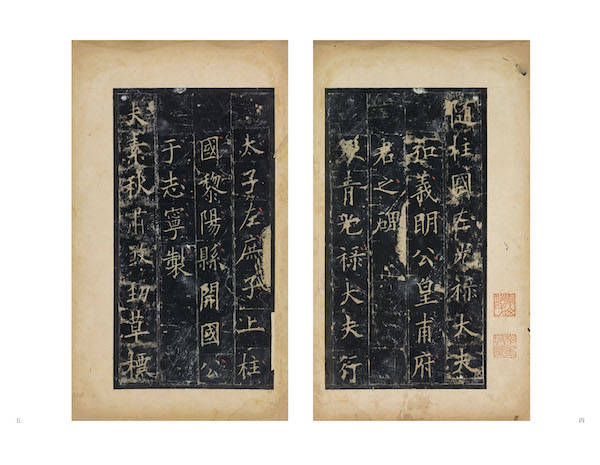 隨柱國左光祿大夫
弘義明公皇甫府
君之碑
青光祿大夫行
四
太子左庶子上柱
國黎陽縣開國公
于志寧製
夫素秋肅勁草標
五